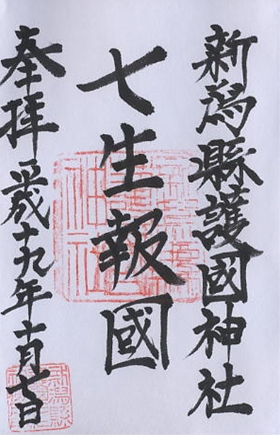 新潟縣護國神社
七生報國
奉拝 平成十九年十月七日